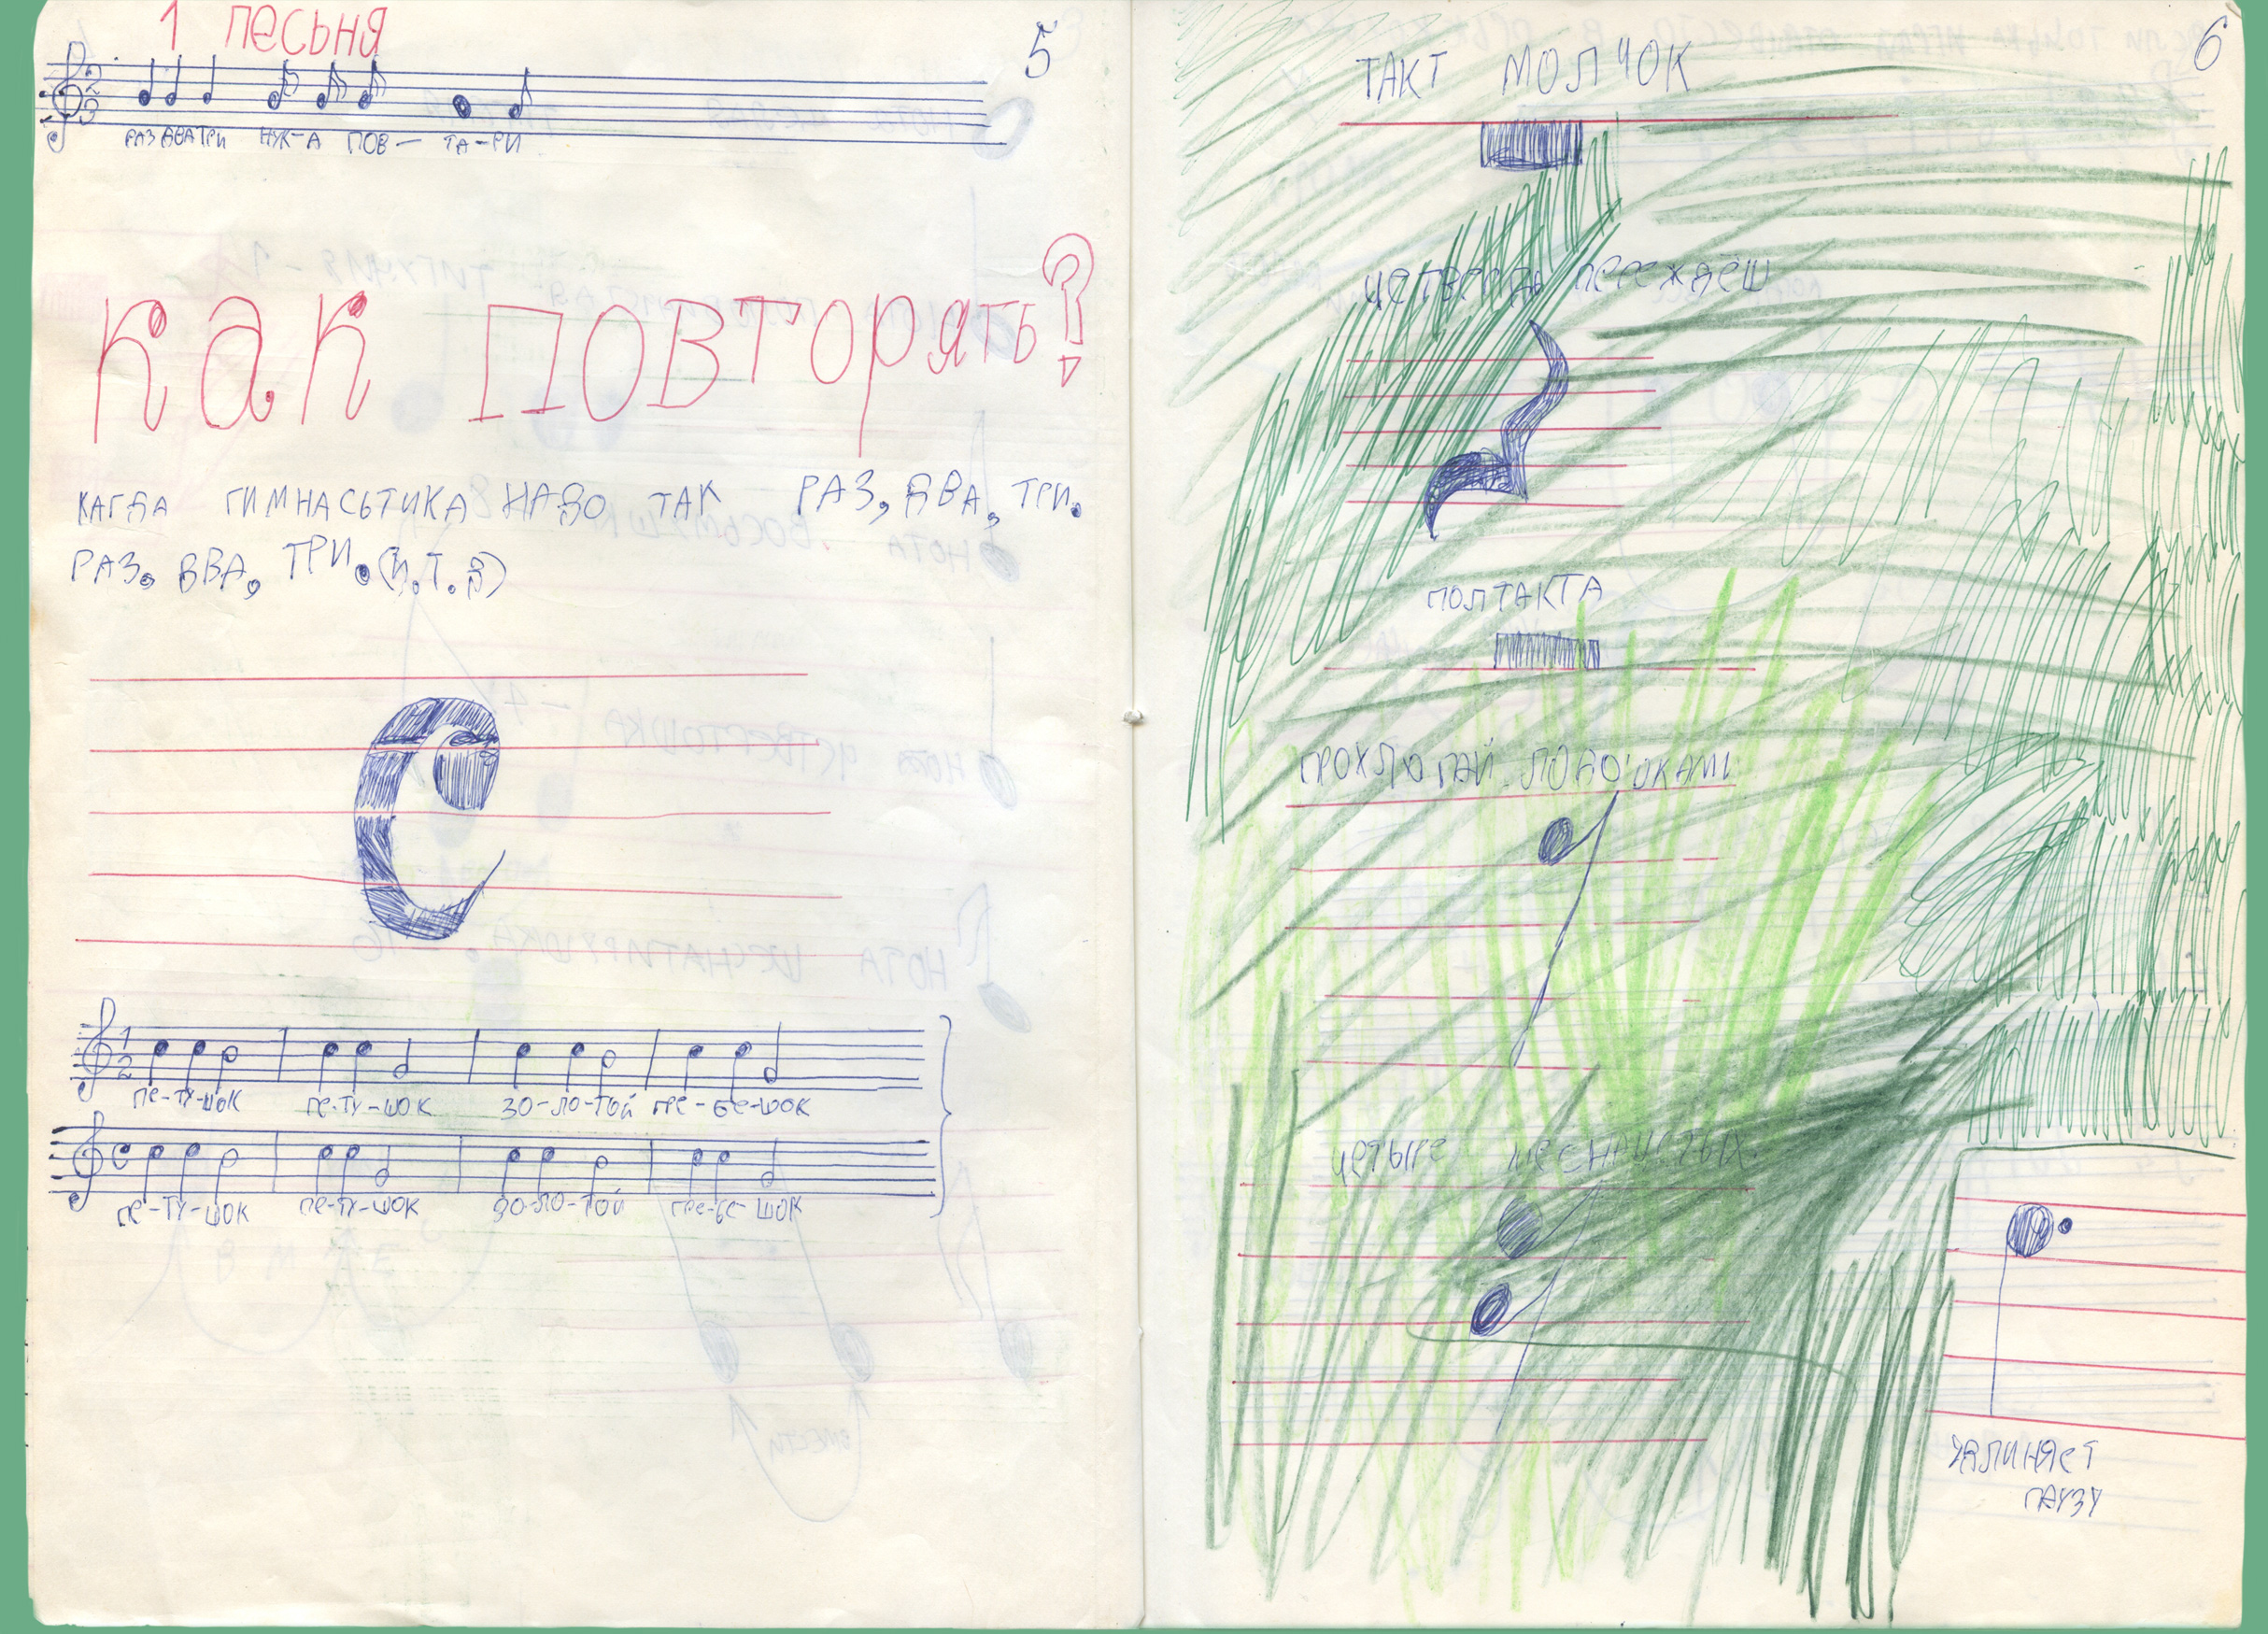 1 песьня
5
2
3
РАЗ ДВА ТРИ НУК-А ПОВ- ТА-РИ
как ПОВТОРЯТЬ?
КАГДА ГИМНАСЬТИКА НАДО ТАК РАЗ, ДВА, ТРИ.
РАЗ, ДВА, ТРИ. (И.Т.Д)
1
2
Пе-ТУ-ШОК Пе-ТУ-ШОК ЗО-ЛО-ТОЙ ГРе-Бе-ШОК
С
Пе-ТУ-ШОК Пе-ТУ-ШОК ЗО-ЛО-ТОЙ ГРе-Бе-ШОК
6
ТАКТ МОЛЧОК
ЧеТВеРТЬ ПеРеЖДЁШ
ПОЛТАКТА
ЧеТЫРе
УДЛИНЯеТ
ПАУЗУ